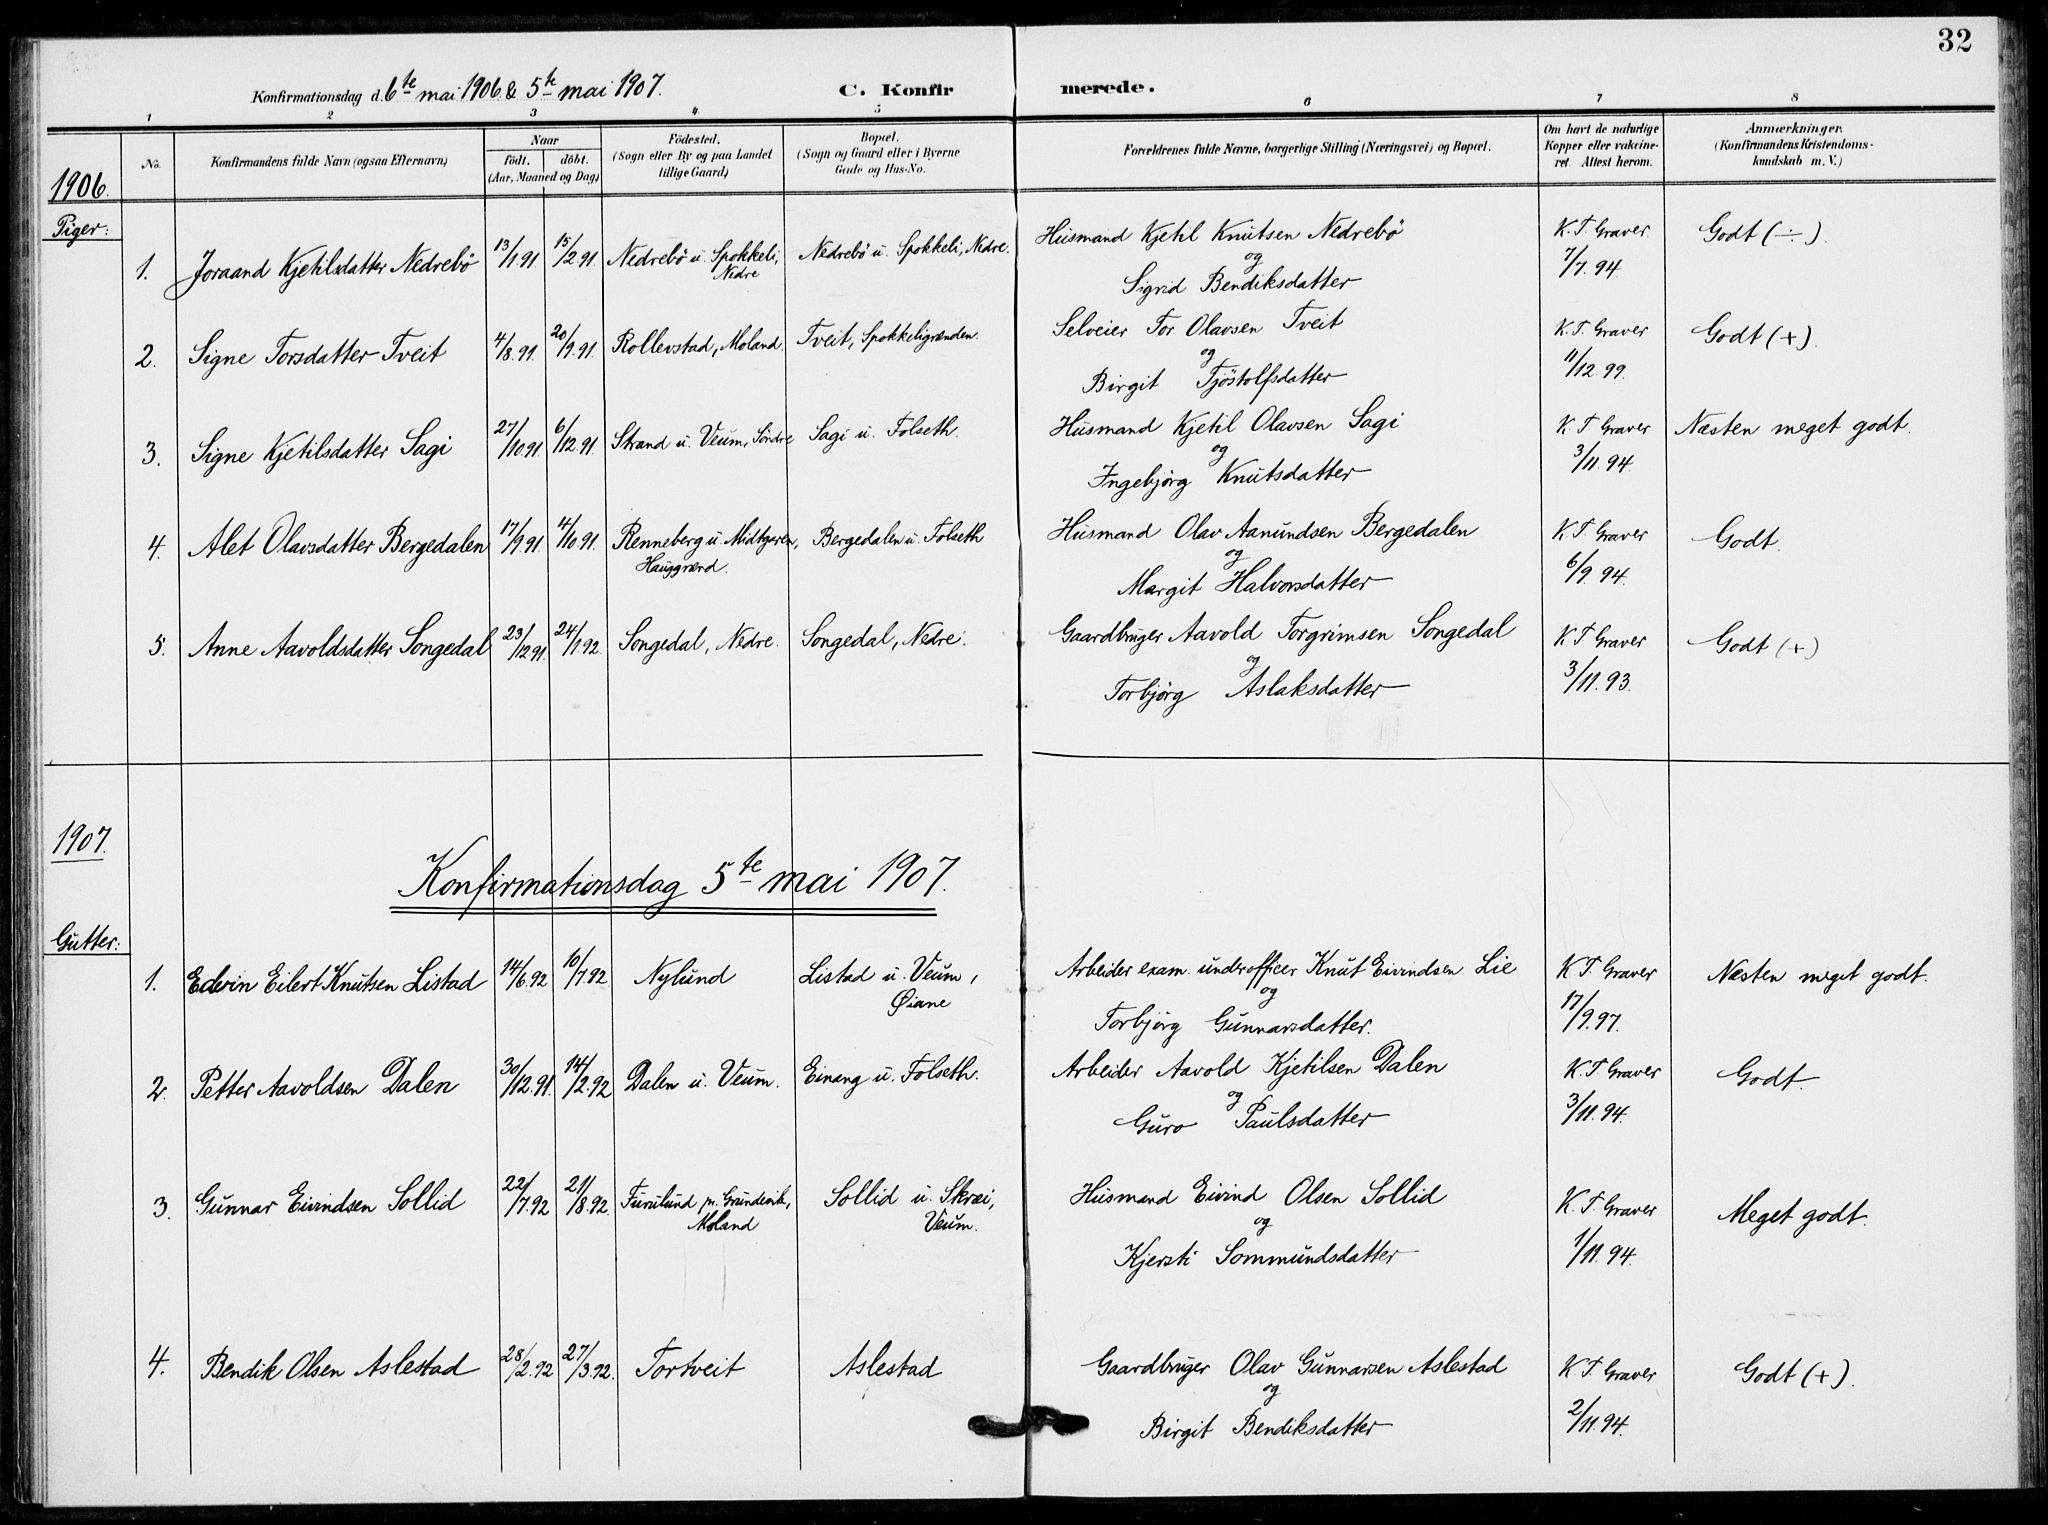 32
Konfirmationsdag d. 6te mai 1906 & 5te mai 1907. C. Konfirmerede.
1 2 3 4 5 6 7 8
No.
Konfirmandens fulde Navn (ogsaa Efternavn)
Naar
födt. döbt.
(Aar, Maaned og Dag)
Födested.
(Sogn eller By og paa Landet
tillige Gaard)
Bopæl.
(Sogn og Gaard eller i Byerne
Gade og Hus-No.
Forældrenes fulde Navne, borgerlige Stilling (Næringsvei) og Bopæl.
Om havt de naturlige
Kopper eller vakcine-
ret Attest herom.
Anmærkninger.
(Konfirmandens Kristendoms-
kundskab m. V.)
1906.
Piger:
1. Joraand Kjetilsdatter Nedrebö 13/1 91 15/2 91 Nedrebö u. Spokkeli, Nedrebö u. Spokkeli, Nedre. Husmand Kjetil Knutsen Nedrebö K. T. Graver Godt (÷).
Nedre og 7/7. 94
Sigrid Bendiksdatter
2. Signe Torsdatter Tveit 4/8. 91. 20/9. 91. Rollevstad, Moland. Tveit, Spokkeligrænden. Selveier Tor Olavsen Tveit K. T. Graver Godt (+).
og 11/12. 99.
Birgit Tjöstolfsdatter
3. Signe Kjetilsdatter Sagi 27/10. 91. 6/12. 91. Strand u. Veum, Söndre Sagi u. Folseth. Husmand Kjetil Olavsen Sagi K. T. Graver Næsten meget godt.
og 3/11. 94.
Ingebjörg Knutsdatter
4. Alet Olavsdatter Bergedalen 17/9. 91. 4/10. 91. Renneberg u. Midtgaren, Bergedalen u. Folseth Husmand Olav Aanundsen Bergedalen K. T. Graver Godt.
Hauggrænd. og 6/9. 94.
Margit Halvorsdatter
5. Anne Aavoldsdatter Songedal 23/12. 91. 24/1 92. Songedal, Nedre. Songedal, Nedre. Gaardbruger Aavold Torgrimsen Songedal K. T. Graver Godt (+)
og 3/11. 93.
Torbjörg Aslaksdatter
1907.
Konfirmationsdag 5te mai 1907.
Gutter:
1. Edvin Eilert Knutsen Listad 14/6. 92 10/7. 92 Nylund Listad u. Veum, Arbeider exam. underofficer Knut Eivindsen Lie K. T. Graver Næsten meget godt.
Øiane og 17/9. 97.
Torbjörg Gunnarsdatter.
2. Petter Aavoldsen Dalen 30/12. 91. 14/2. 92 Dalen u. Veum. Einang u. Folseth. Arbeider Aavold Kjetilsen Dalen K. T. Graver Godt.
og 3/11. 94.
Guro Paulsdatter
3. Gunnar Eivindsen Sollid 22/7. 92 21/8. 92. Furulund Sollid u. Skræi, Husmand Eivind Olsen Sollid K. T. Graver Meget godt.
Moland Veum. og 1/11. 94.
Kjersti Sommundsdatter
4. Bendik Olsen Aslestad 28/2. 92 27/3. 92. Tortveit Aslestad Gaardbruger Olav Gunnarsen Aslestad K. T. Graver Godt (+).
og 2/11. 94.
Birgit Bendiksdatter